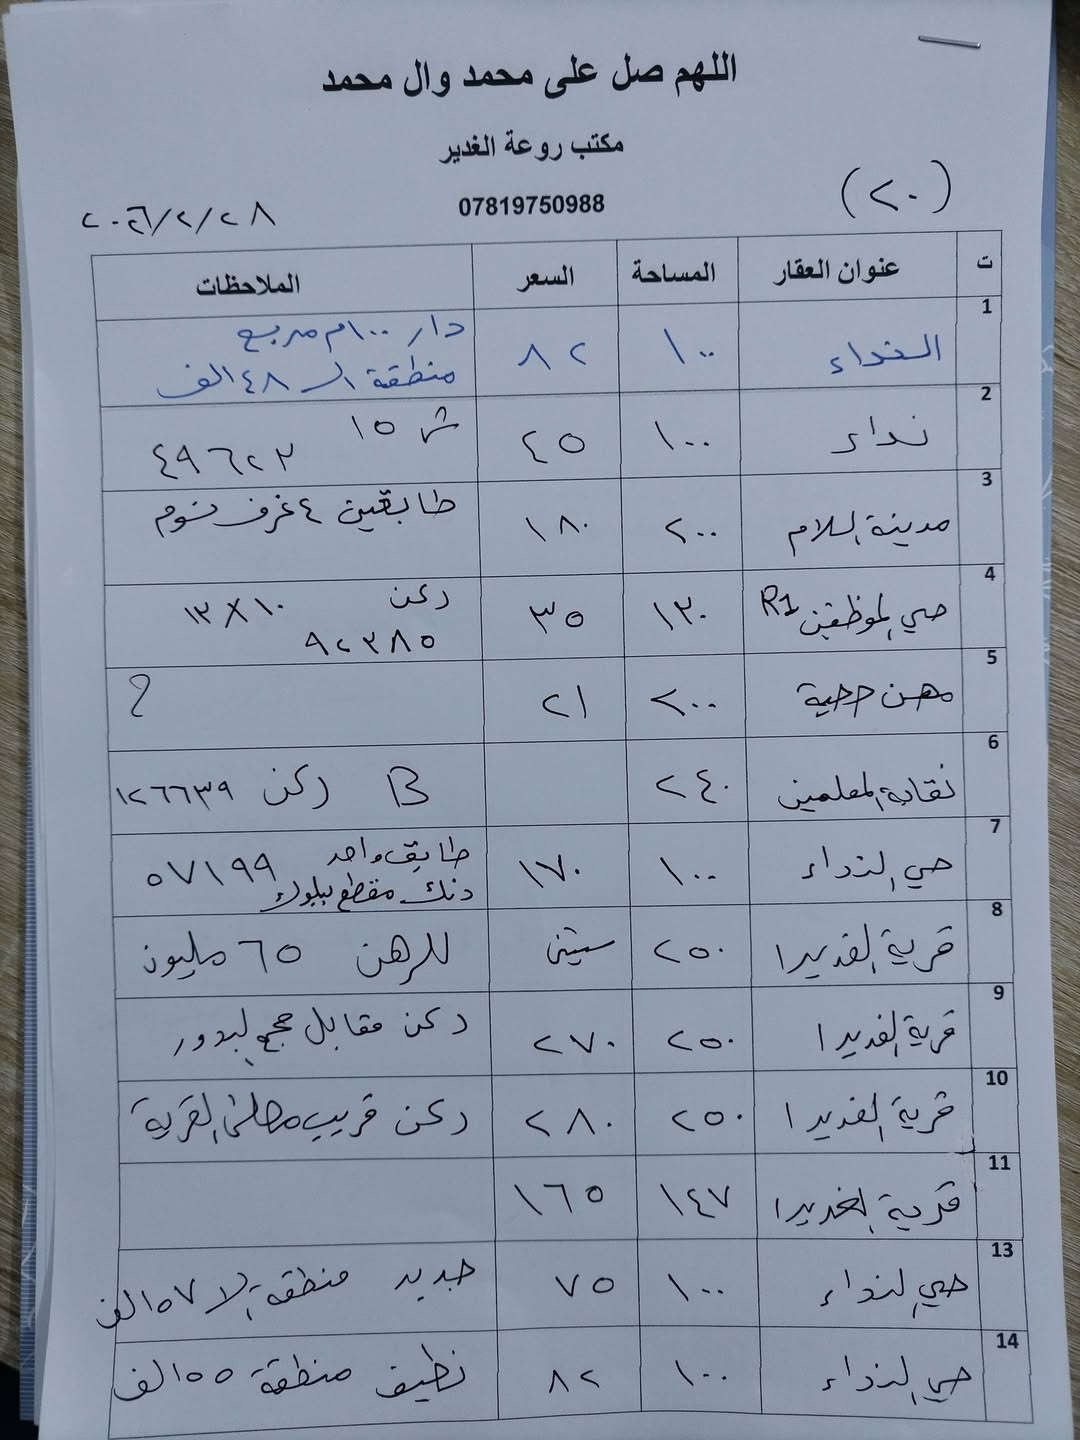 اللهم صل على محمد وال محمد
مكتب روعة الغدير
07819750988
(٢٠)
٢٠٢٦/٢/٢٨
ت عنوان العقار المساحة السعر الملاحظات
1 النداء ١٠٠ ٨٢ دار ١٠٠م مربع
منطقة الـ ٤٨ الف
2 نداء ١٠٠ ٤٥ ش ١٥
٤٩٦٢٣
3 مدينة السلام ٢٠٠ ١٨٠ طابقين ٤ غرف نوم
4 حي الموظفين R1 ١٣٠ ٣٥ ركن ١٠×١٣
٩٢٣٨٥
5 مهن صحية ٢٠٠ ٢١ ؟
6 نقابة المعلمين ٢٤٠ B ركن ١٢٦٦٣٩
7 حي النداء ١٠٠ ١٧٠ طابق واحد ٥٧١٩٩
دنك مقطع ببلوك
8 قرية الغدير ١ ٢٥٠ سنتين للرهن ٦٥ مليون
9 قرية الغدير ١ ٢٥٠ ٢٧٠ ركن مقابل مجمع البدور
10 قرية الغدير ١ ٢٥٠ ٢٨٠ ركن قريب مصلى القرية
11 قرية الغدير ١ ١٤٧ ١٦٥
13 حي النداء ١٠٠ ٧٥ جديد منطقة الـ ٥٧ الف
14 حي النداء ١٠٠ ٨٢ نظيف منطقة ٥٥ الف